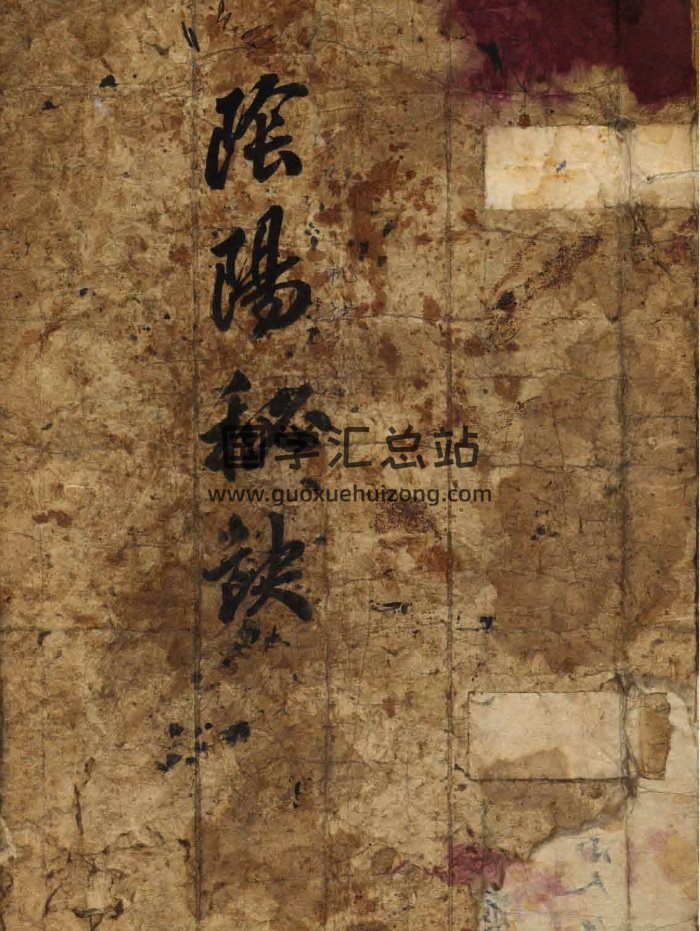 陰陽秘訣
国学汇总站
www.guoxuehuizong.com